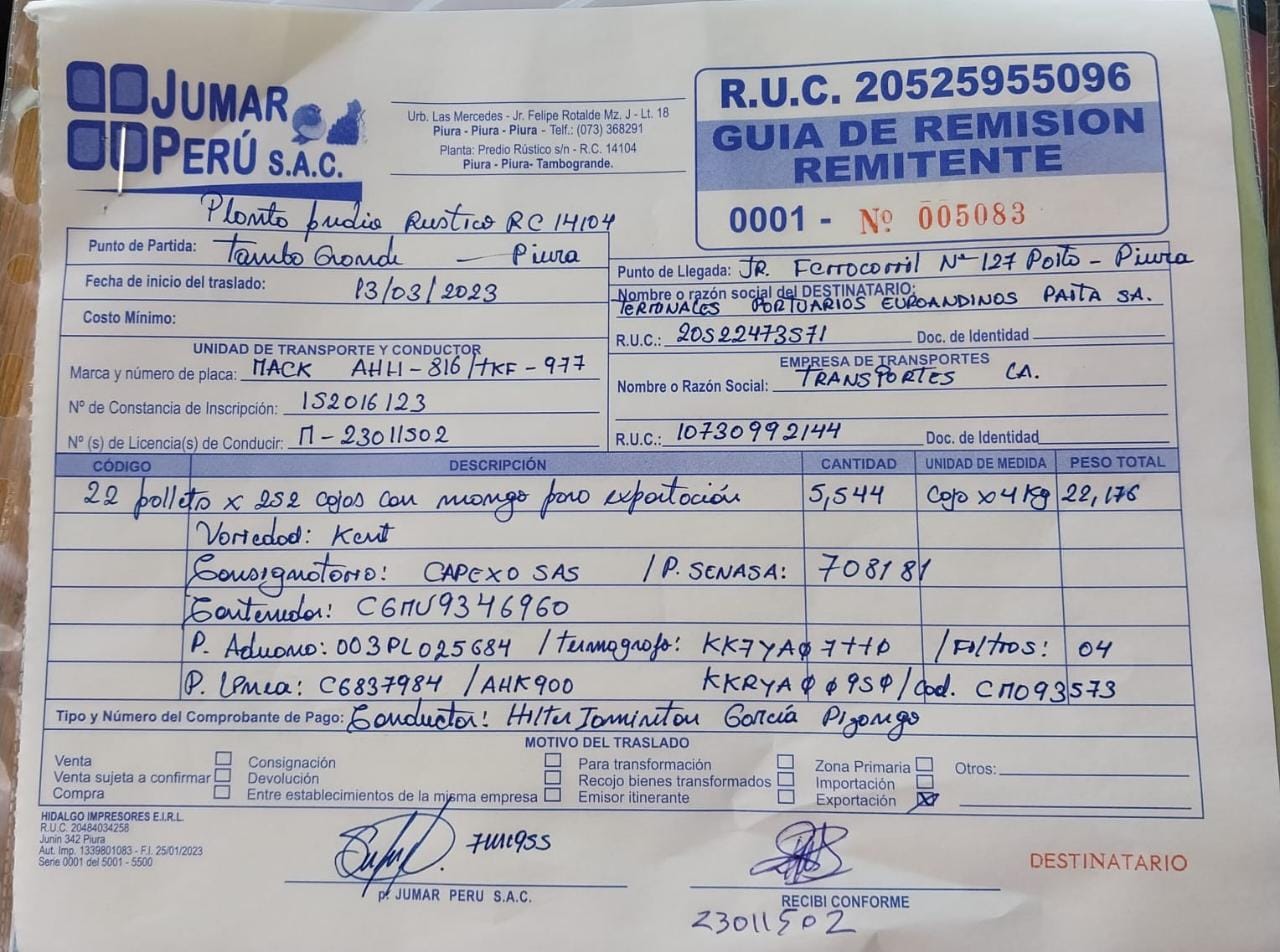 JUMAR
PERÚ S.A.C.
Urb. Las Mercedes - Jr. Felipe Rotalde Mz. J - Lt. 18
Piura - Piura - Piura - Telf.: (073) 368291
Planta: Predio Rústico s/n - R.C. 14104
Piura - Piura- Tambogrande.
R.U.C. 20525955096
GUIA DE REMISION
REMITENTE
0001 - Nº 005083
Planta predio Rustico RC 14104
Punto de Partida: Tambo Grande — Piura
Fecha de inicio del traslado: 13/03/2023
Costo Mínimo:
Punto de Llegada: JR. Ferrocarril Nº 127 Paita - Piura
Nombre o razón social del DESTINATARIO:
TERMINALES PORTUARIOS EUROANDINOS PAITA SA.
R.U.C.: 20522473571 Doc. de Identidad
UNIDAD DE TRANSPORTE Y CONDUCTOR
Marca y número de placa: MACK AHH-816/TKF-977
Nº de Constancia de Inscripción: 152016123
Nº (s) de Licencia(s) de Conducir: M-23011502
EMPRESA DE TRANSPORTES
Nombre o Razón Social: TRANSPORTES CA.
R.U.C.: 10730992144 Doc. de Identidad
CÓDIGO DESCRIPCIÓN CANTIDAD UNIDAD DE MEDIDA PESO TOTAL
22 pallets x 252 cajas con mango para exportación 5,544 Caja x 4 Kg 22,176
Variedad: Kent
Consignatario: CAPEXO SAS / P. SENASA: 708181
Contenedor: CGMU9346960
P. Aduana: 003PL025684 / Termografo: KK7YAØ7HHD / Filtros: 04
P. Linea: C6837984 / AHK900 KKRYAØØ9SØ / Cod. CM093573
Tipo y Número del Comprobante de Pago: Conductor: Hilter Jominton García Pizango
MOTIVO DEL TRASLADO
Venta Consignación Para transformación Zona Primaria Otros:
Venta sujeta a confirmar Devolución Recojo bienes transformados Importación
Compra Entre establecimientos de la misma empresa Emisor itinerante Exportación X
HIDALGO IMPRESORES E.I.R.L.
R.U.C. 20484034258
Junin 342 Piura
Aut. Imp. 1339801083 - F.I. 25/01/2023
Serie 0001 del 5001 - 5500
p. JUMAR PERU S.A.C.
RECIBI CONFORME
23011502
DESTINATARIO